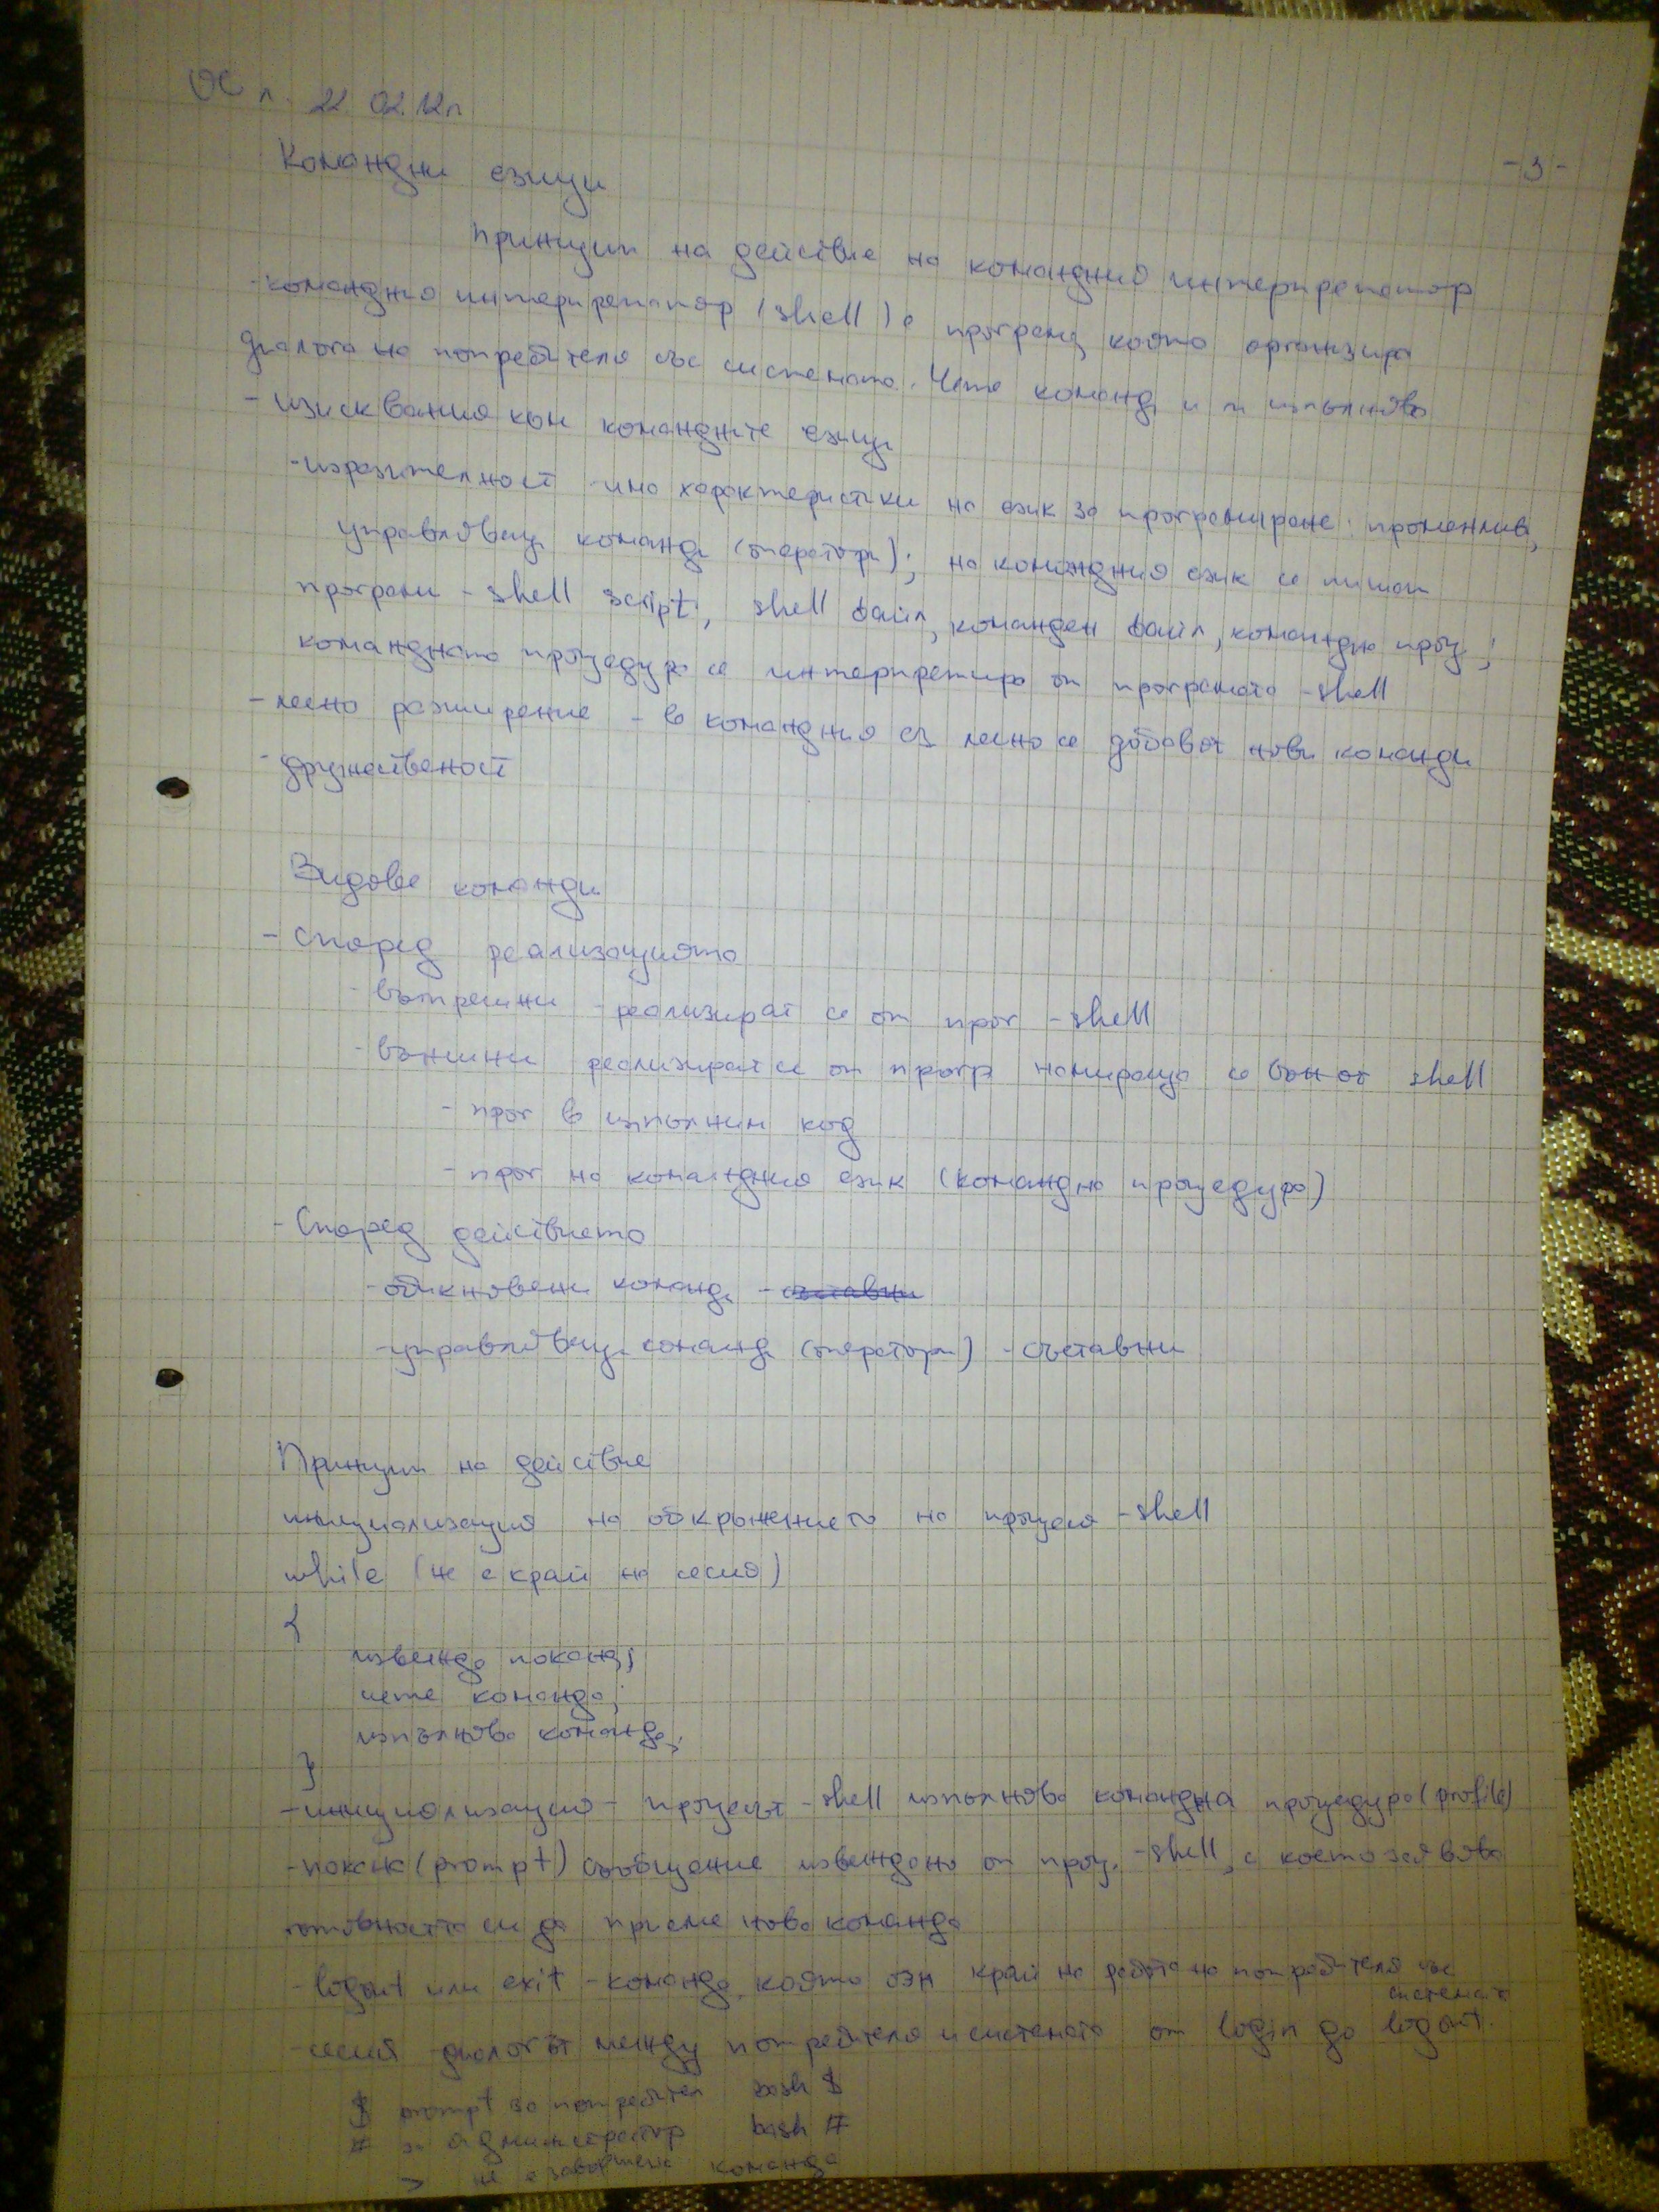 ОС л. 22.02.12г.
-3-
Командни езици
Принцип на действие на командния интерпретатор
-командния интерпретатор (shell) е програма, която организира
диалога на потребителя със системата. Чете команди и ги изпълнява
- изисквания към командните езици
-изразителност -има характеристики на език за програмиране: променливи,
управляващи команди (оператори); на командния език се пишат
програми - shell script, shell файл, команден файл, командна проц.;
командната процедура се интерпретира от програмата -shell
-лесно разширение - в командния ез лесно се добавят нови команди
-дружественост
Видове команди
- Според реализацията
-вътрешни -реализират се от прог -shell
-външни реализират се от прогр намираща се вън от shell
- прог в изпълним код
- прог на командния език (командна процедура)
- Според действието
-обикновени команди - съставни
-управляващи команди (оператори) -съставни
Принцип на действие
инициализация на обкръжението на процеса -shell
while (не е край на сесия)
{
извежда покана;
чете команда;
изпълнява команда;
}
-инициализация- процесът -shell изпълнява командна процедура (profile)
-покана (prompt) съобщение извеждано от проц. -shell, с което заявява
готовността си да приеме нова команда
-logout или exit -команда, която озн край на работа на потребителя със
системата
-сесия -диалогът между потребителя и системата от login до logout.
$ prompt за потребител bash $
# за администратор bash #
> не е завършена команда